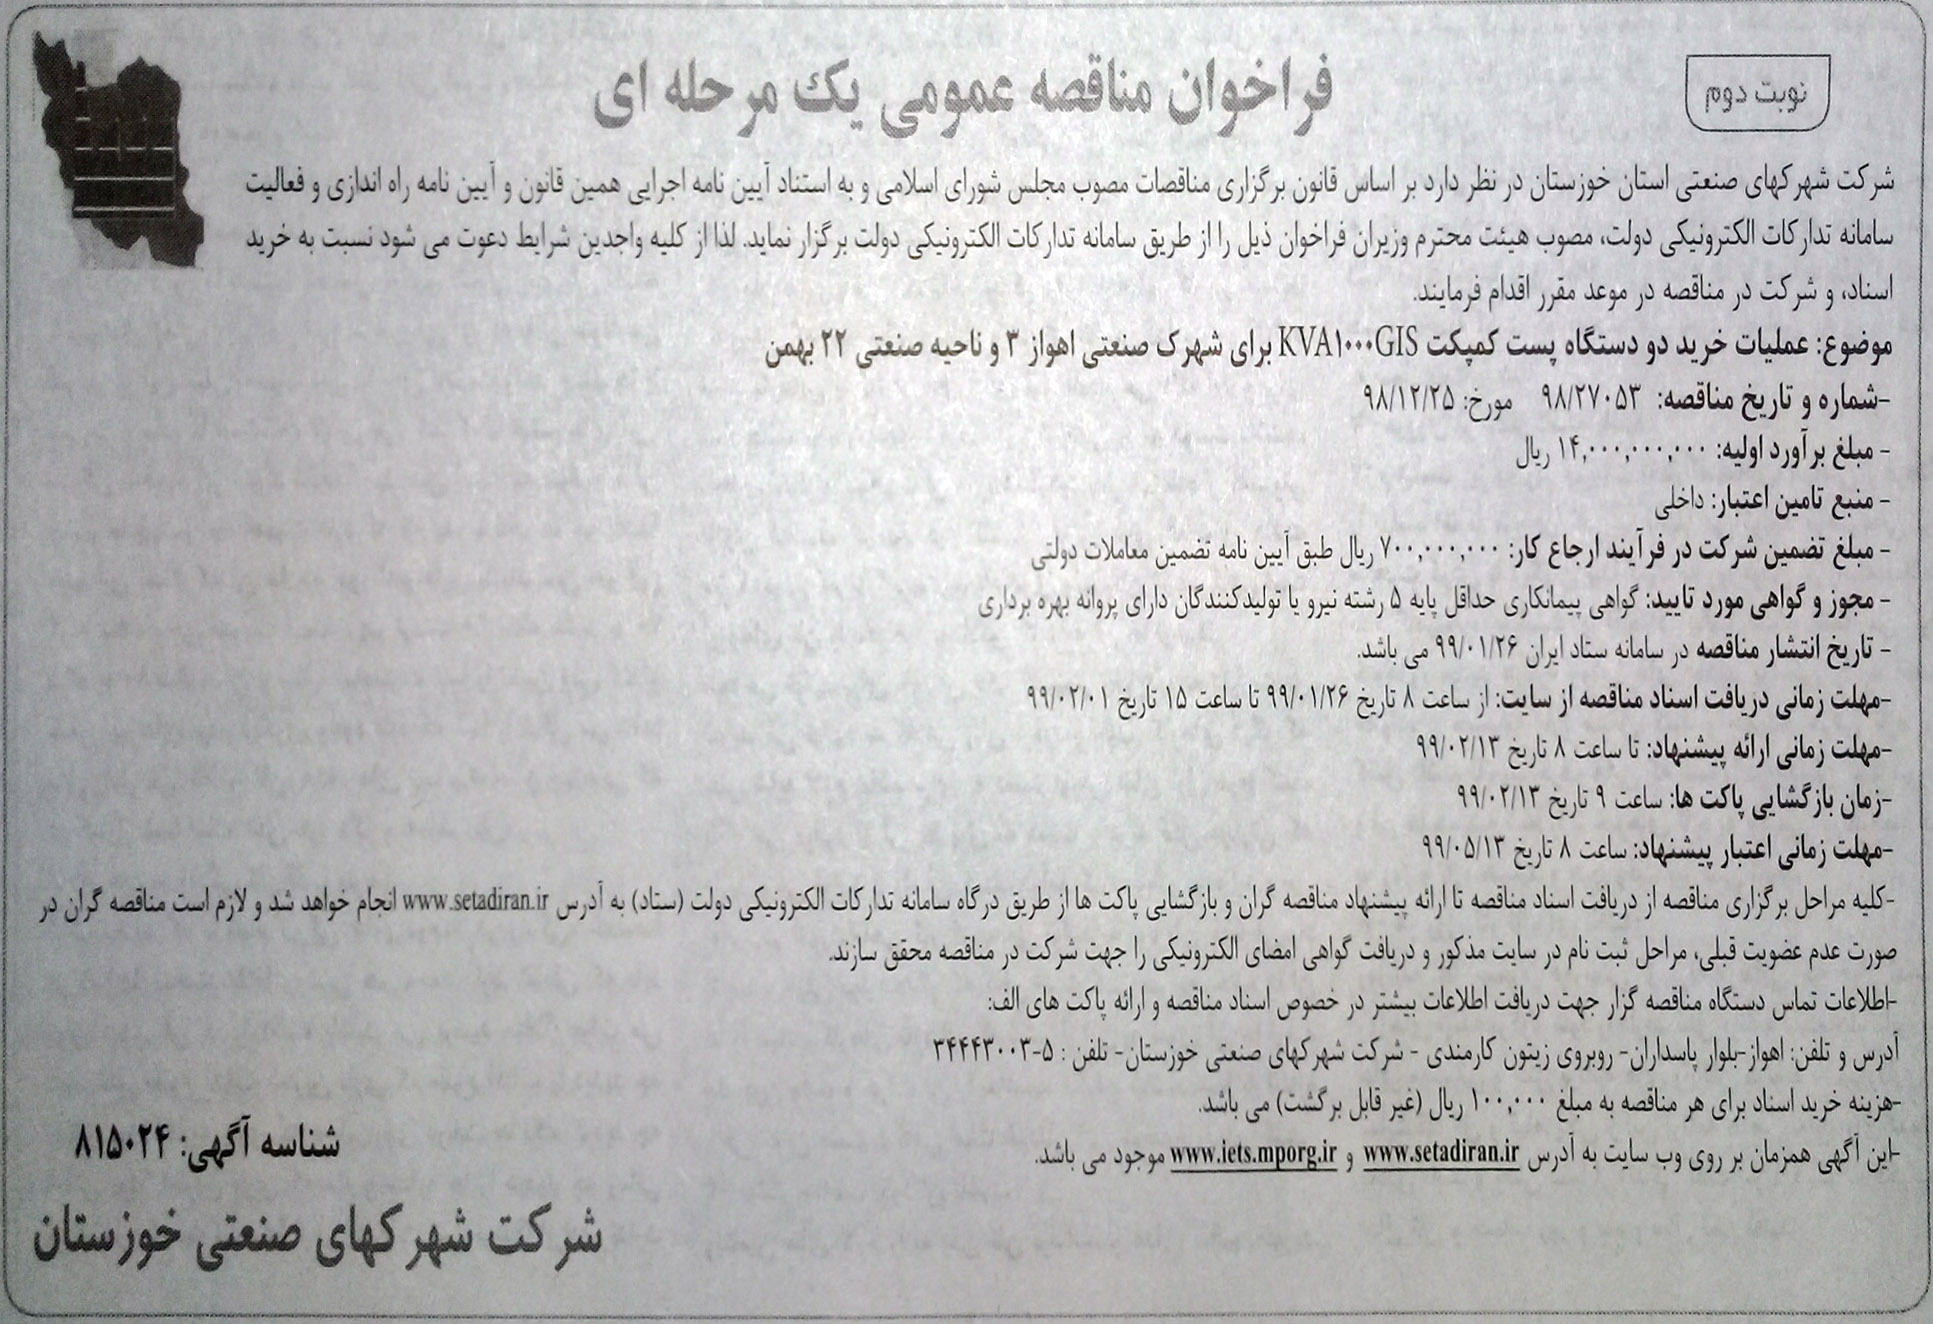 نوبت دوم
فراخوان مناقصه عمومی یک مرحله ای
شرکت شهرکهای صنعتی استان خوزستان در نظر دارد بر اساس قانون برگزاری مناقصات مصوب مجلس شورای اسلامی و به استناد آیین نامه اجرایی همین قانون و آیین نامه راه اندازی و فعالیت
سامانه تدارکات الکترونیکی دولت، مصوب هیئت محترم وزیران فراخوان ذیل را از طریق سامانه تدارکات الکترونیکی دولت برگزار نماید. لذا از کلیه واجدین شرایط دعوت می شود نسبت به خرید
اسناد، و شرکت در مناقصه در موعد مقرر اقدام فرمایند.
موضوع: عملیات خرید دو دستگاه پست کمپکت KVA۱۰۰۰GIS برای شهرک صنعتی اهواز ۳ و ناحیه صنعتی ۲۲ بهمن
-شماره و تاریخ مناقصه: ۹۸/۲۷۰۵۳ مورخ: ۹۸/۱۲/۲۵
- مبلغ برآورد اولیه: ۱۴,۰۰۰,۰۰۰,۰۰۰ ریال
- منبع تامین اعتبار: داخلی
- مبلغ تضمین شرکت در فرآیند ارجاع کار: ۷۰۰,۰۰۰,۰۰۰ ریال طبق آیین نامه تضمین معاملات دولتی
- مجوز و گواهی مورد تایید: گواهی پیمانکاری حداقل پایه ۵ رشته نیرو یا تولیدکنندگان دارای پروانه بهره برداری
- تاریخ انتشار مناقصه در سامانه ستاد ایران ۹۹/۰۱/۲۶ می باشد.
-مهلت زمانی دریافت اسناد مناقصه از سایت: از ساعت ۸ تاریخ ۹۹/۰۱/۲۶ تا ساعت ۱۵ تاریخ ۹۹/۰۲/۰۱
-مهلت زمانی ارائه پیشنهاد: تا ساعت ۸ تاریخ ۹۹/۰۲/۱۳
-زمان بازگشایی پاکت ها: ساعت ۹ تاریخ ۹۹/۰۲/۱۳
-مهلت زمانی اعتبار پیشنهاد: ساعت ۸ تاریخ ۹۹/۰۵/۱۳
-کلیه مراحل برگزاری مناقصه از دریافت اسناد مناقصه تا ارائه پیشنهاد مناقصه گران و بازگشایی پاکت ها از طریق درگاه سامانه تدارکات الکترونیکی دولت (ستاد) به آدرس www.setadiran.ir انجام خواهد شد و لازم است مناقصه گران در
صورت عدم عضویت قبلی، مراحل ثبت نام در سایت مذکور و دریافت گواهی امضای الکترونیکی را جهت شرکت در مناقصه محقق سازند.
-اطلاعات تماس دستگاه مناقصه گزار جهت دریافت اطلاعات بیشتر در خصوص اسناد مناقصه و ارائه پاکت های الف:
آدرس و تلفن: اهواز-بلوار پاسداران- روبروی زیتون کارمندی - شرکت شهرکهای صنعتی خوزستان- تلفن : ۵-۳۴۴۴۳۰۰۳
-هزینه خرید اسناد برای هر مناقصه به مبلغ ۱۰۰,۰۰۰ ریال (غیر قابل برگشت) می باشد.
-این آگهی همزمان بر روی وب سایت به آدرس www.setadiran.ir و www.iets.mporg.ir موجود می باشد.
شناسه آگهی: ۸۱۵۰۲۴
شرکت شهرکهای صنعتی خوزستان